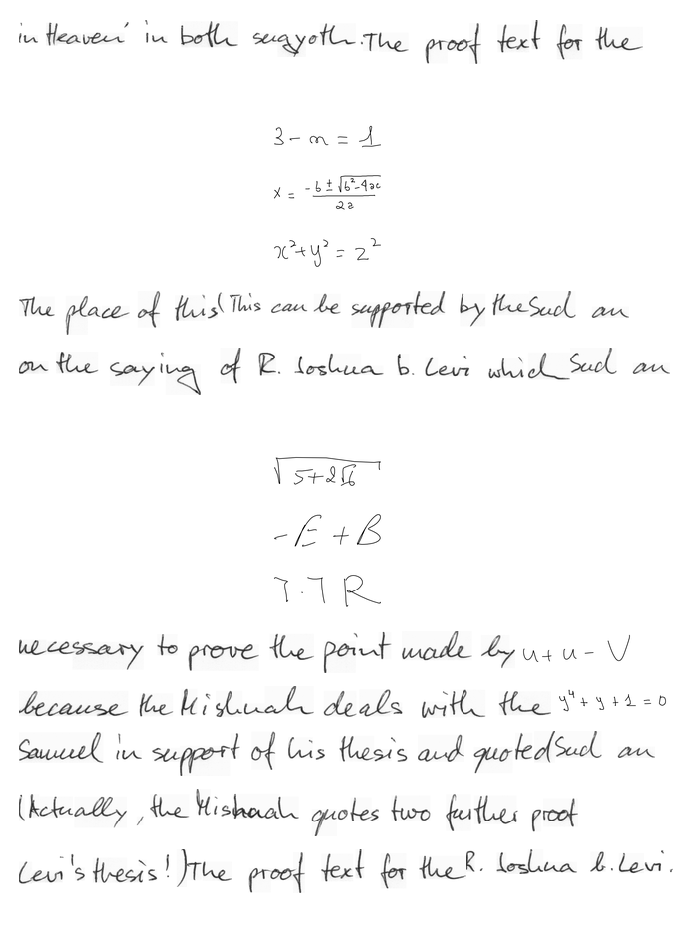 in Heaven' in both sugyoth. The proof text for the
3 - m = 1
x = \frac{-b ± \sqrt{b^2 - 4ac}}{2a}
x^2 + y^2 = z^2
The place of this (This can be supported by the Sud an
on the saying of R. Joshua b. Levi which Sud an
\sqrt{5 + 2\sqrt{6}}
- E + B
7.7 R
necessary to prove the point made by u + u - V
because the Mishnah deals with the y^4 + y + 1 = 0
Samuel in support of his thesis and quoted Sud an
(Actually, the Mishnah quotes two further proof
Levi's thesis!) The proof text for the R. Joshua b. Levi.